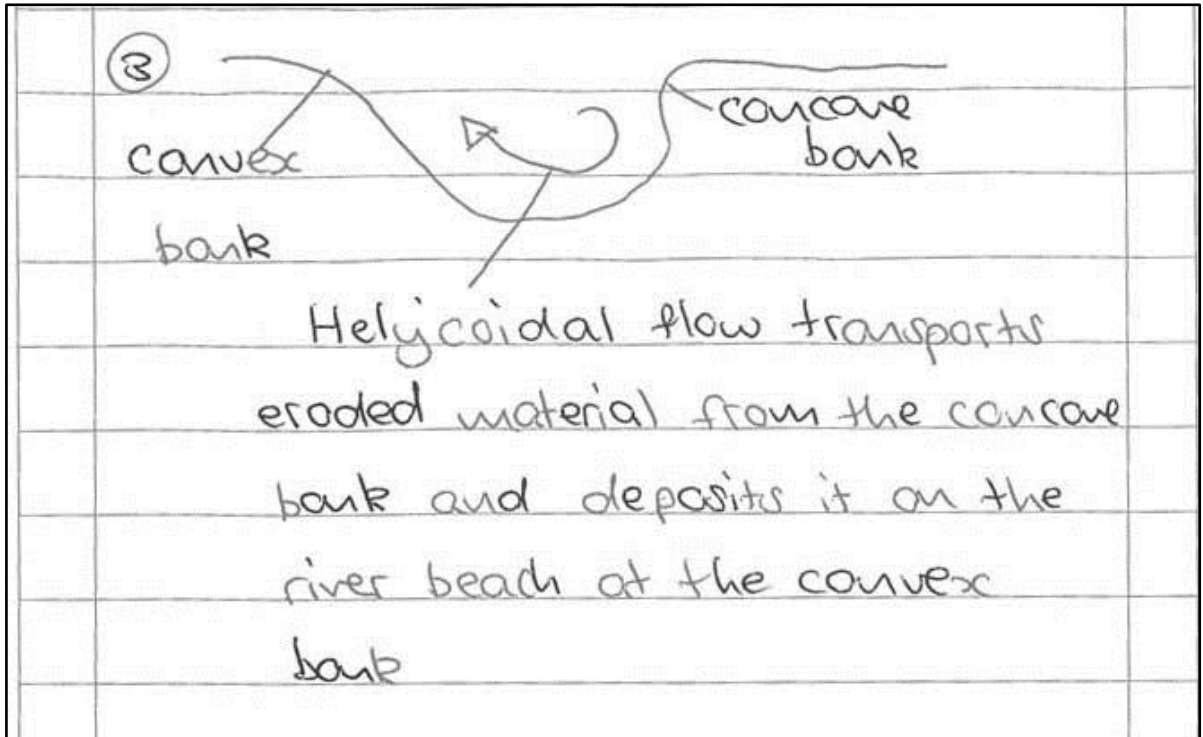 3
concave
convex bank
bank
Helycoidal flow transports
eroded material from the concave
bank and deposits it on the
river beach at the convex
bank